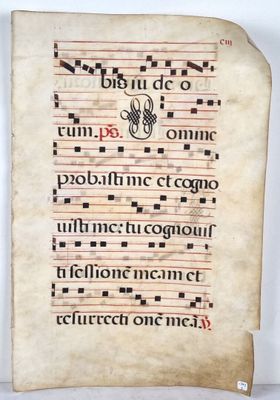 cııı
bis iu de o
rum. ps. Domine
probasti me et cogno
uisti me: tu cognouis
ti sessionē meam et
resurrecti onē meā. V